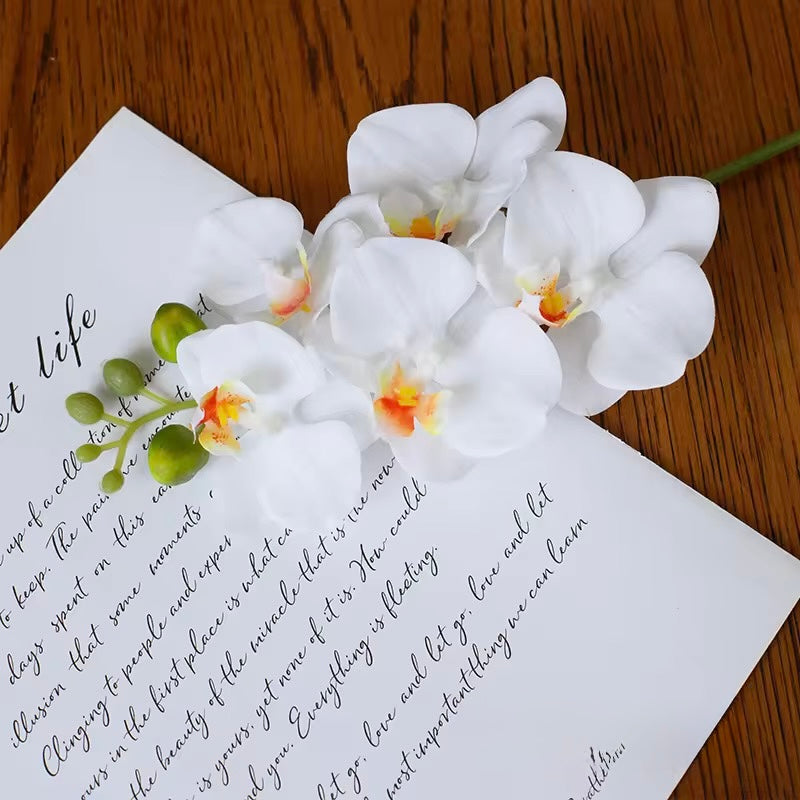 et life
at
of
up of a collection of moments
to keep. The pain we encounter
days spent on this ea
illusion that some moments
Clinging to people and exper
yours in the first place is what ca
the beauty of the miracle that is the now
is yours, yet none of it is. How could
and you. Everything is fleeting.
let go, love and let go, love and let
most important thing we can learn